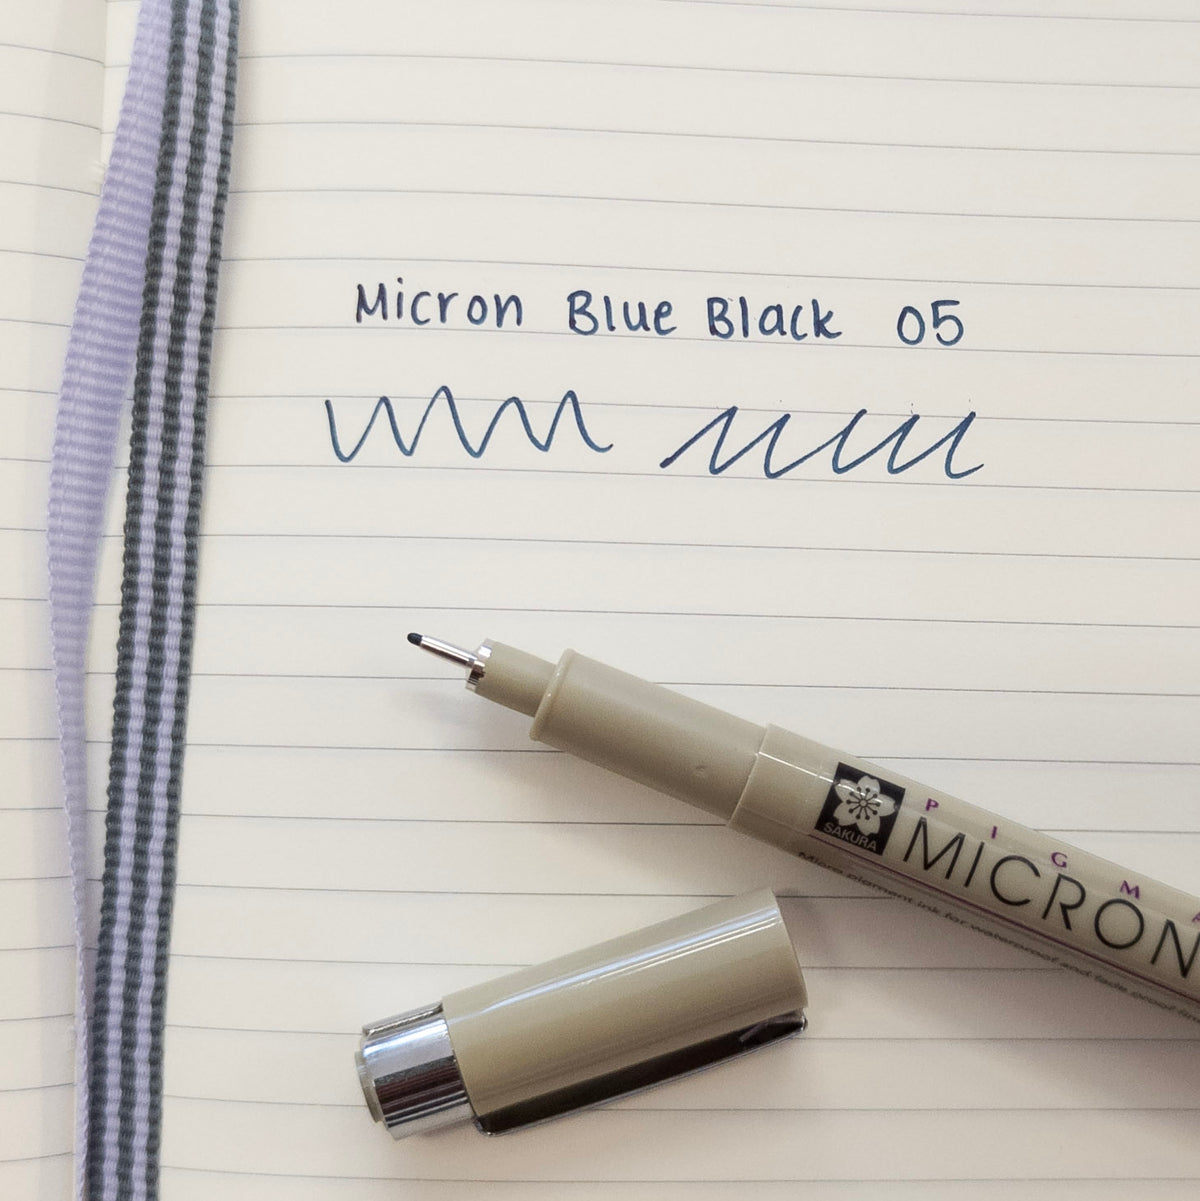 Micron Blue Black 05
SAKURA
PIGMA
MICRON
Micro pigment ink for waterproof and fade proof